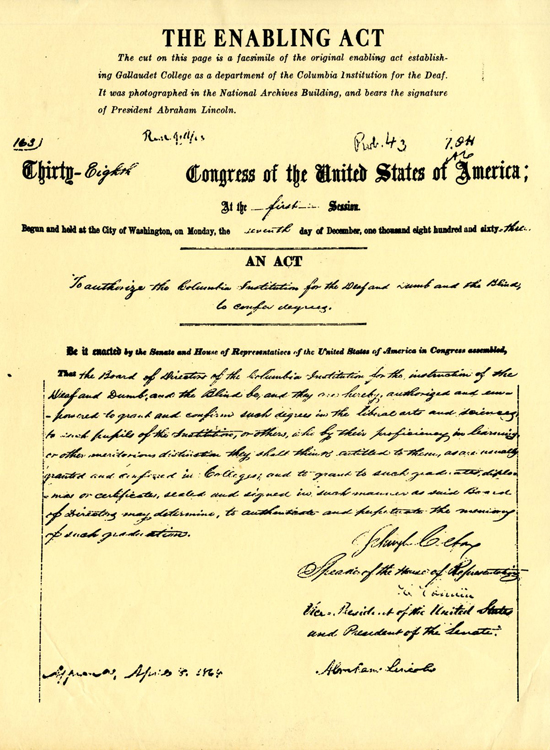 THE ENABLING ACT
The cut on this page is a facsimile of the original enabling act establish-
ing Gallaudet College as a department of the Columbia Institution for the Deaf.
It was photographed in the National Archives Building, and bears the signature
of President Abraham Lincoln.
1631
Pub. 43
Thirty-Eighth Congress of the United States of America;
At the first Session.
Begun and held at the City of Washington, on Monday, the seventh day of December, one thousand eight hundred and sixty-three.
AN ACT
To authorize the Columbia Institution for the Deaf and Dumb and the Blind,
to confer degrees.
Be it enacted by the Senate and House of Representatives of the United States of America in Congress assembled,
That the Board of Directors of the Columbia Institution for the instruction of the
Deaf and Dumb, and the Blind be, and they are hereby, authorized and em-
-powered to grant and confirm such degrees in the liberal arts and sciences,
to such pupils of the Institution, or others, who by their proficiency in learning
or other meritorious distinction they shall think entitled to them, as are usually
granted and conferred in Colleges; and to grant to such graduates diplo-
mas or certificates, sealed and signed in such manner as said Board
of Directors may determine, to authenticate and perpetuate the memory
of such graduation.
Schuyler Colfax
Speaker of the House of Representatives
H Hamlin
Vice-President of the United States
and President of the Senate.
Approved, April 8, 1864
Abraham Lincoln